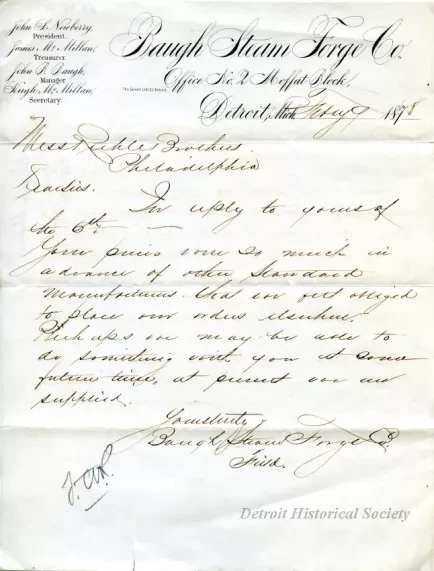 John S. Newberry,
President.
James McMillan,
Treasurer.
John B. Baugh,
Manager
Hugh McMillan,
Secretary.
Baugh Steam Forge Co.
Office No. 2 Moffat Block,
Detroit, Mich Feby 9 1878
Mess Riehle Brothers.
Philadelphia
Dearsirs.
In reply to yours of
the 6th —
Your prices were so much in
advance of other Standard
manufacturers that we felt obliged
to place our orders elsewhere.
Perhaps we may be able to
do something with you at some
future time, at present we are
supplied.
Yours truly
Baugh Steam Forge Co.
Detroit Historical Society